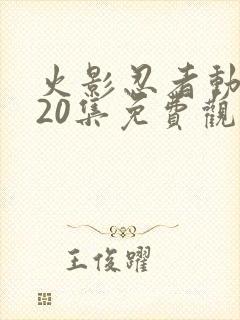 火影忍者動
20集免費觀
王俊躍